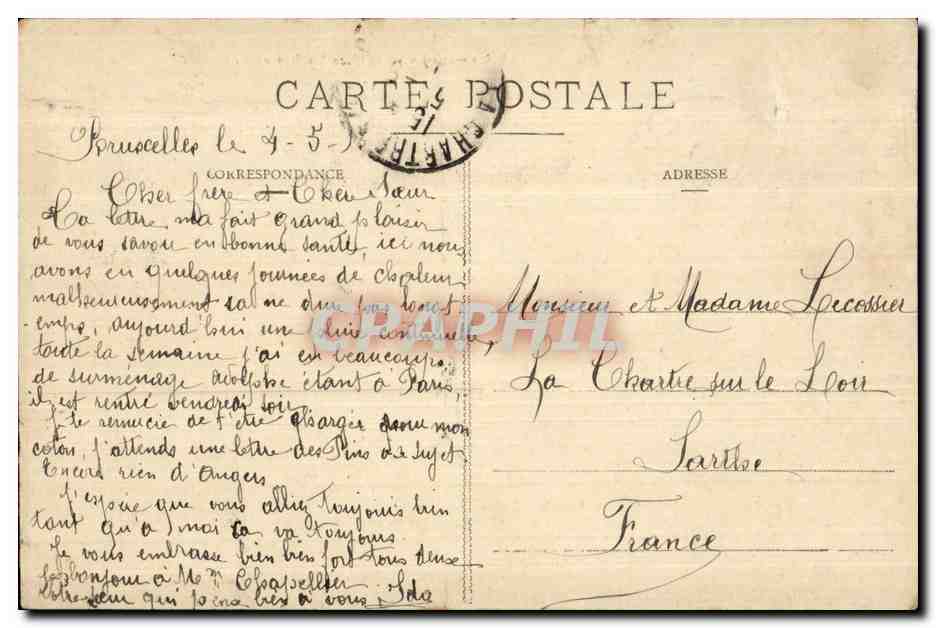 CARTE POSTALE
LA CHARTRE
15
5
Bruxelles le 4-5-1
CORRESPONDANCE
Cher frère et Chere Sœur
Ta lettre ma fait grand plaisir
de vous savoir en bonne santé, ici nous
avons eu quelques journées de chaleur
malheureusement sa ne dure pas longt
emps, aujourd'hui une pluie continuelle,
toute la semaine j'ai eu beaucoup
de surménage adolphe étant à Paris,
il est rentré vendredi soir
Je te remercie de t'être chargée pour mon
coton, j'attends une lettre des Pins à ce sujet
Encore rien d'Angers
J'espère que vous alliez toujours bien
tant qu'a moi ca va toujours
Je vous embrasse bien bien fort tous deux
bonjour à Mme Chapellier
Votre sœur qui pense bien à vous, Ida
ADRESSE
Monsieur et Madame Lecossier
La Chartre sur le Loir
Sarthe
France
CPAPHIL